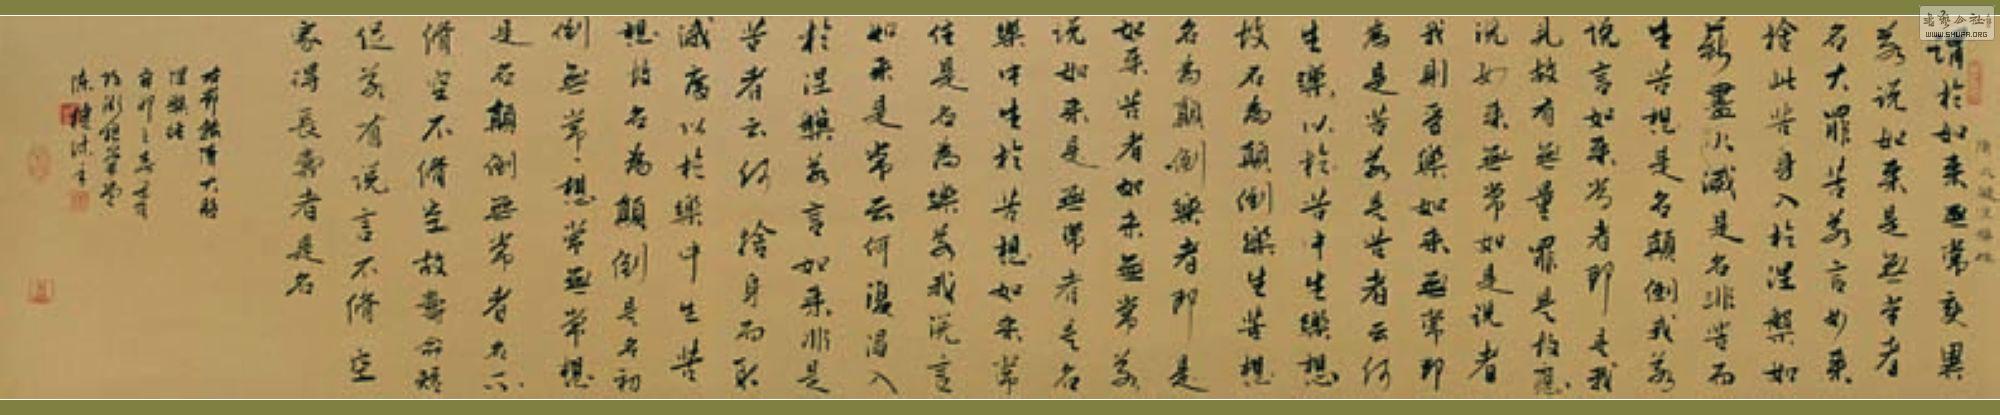 书艺公社
WWW.SHUFA.ORG
謂於如來無常變異
若說如來是無常者
名大罪苦若言如來
捨此苦身入於涅槃如
薪盡火滅是名非苦而
生苦想是名顛倒我若
說言如來常者即是我
見故有無量罪是故應
說如來無常如是說者
我則受樂如來無常即
為是苦若是苦者云何
生樂以於苦中生樂想
故名為顛倒樂生苦想
名為顛倒樂者即是
如來苦者如來無常若
說如來是無常者是名
樂中生於苦想如來常
住是名為樂若我說言
如來是常云何復得入
於涅槃若言如來非是
苦者云何捨身而取
滅度以於樂中生苦
想故名為顛倒是名初
倒無常常想常無常想
是名顛倒無常者名不
脩空不脩空故壽命短
促若有說言不脩空
寂得長壽者是名
右節錄隋大般
涅槃經
辛卯之春